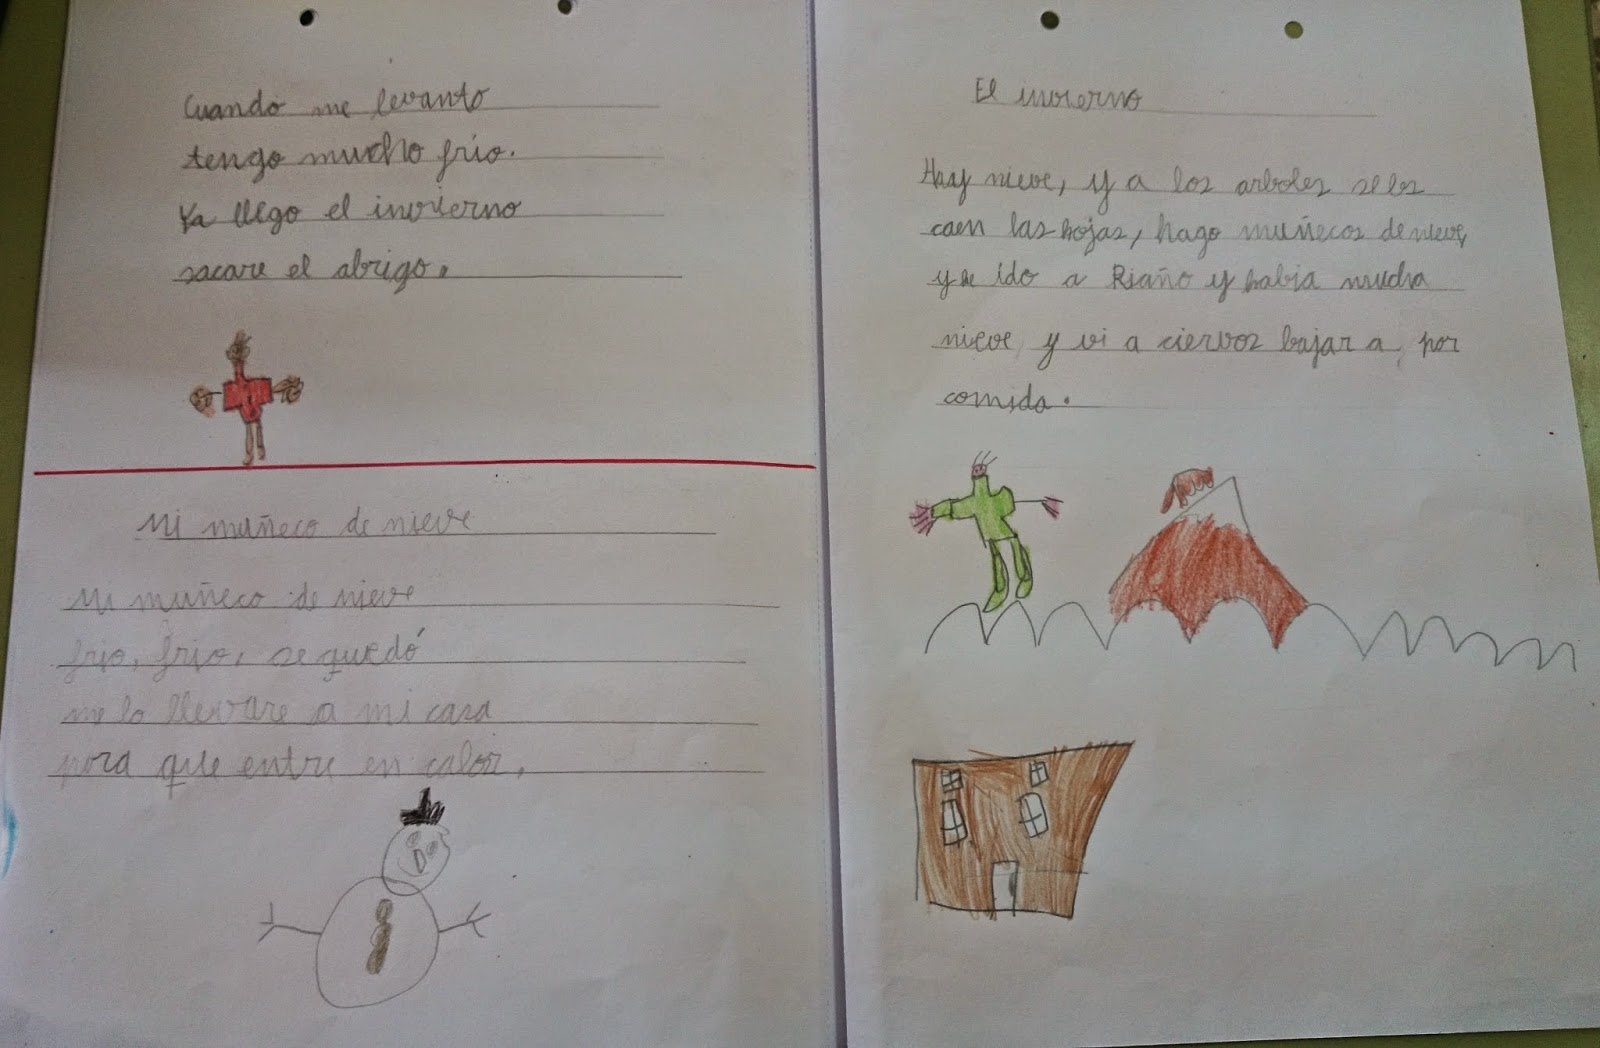 Cuando me levanto
tengo mucho frio.
Ya llego el invierno
sacare el abrigo.
Mi muñeco de nieve
Mi muñeco de nieve
frio, frio, se quedó
me lo llevare a mi casa
para que entre en calor.
El invierno
Hay nieve, y a los arboles se les
caen las hojas, hago muñecos de nieve,
y he ido a Riaño y habia mucha
nieve, y vi a ciervos bajar a por
comida.